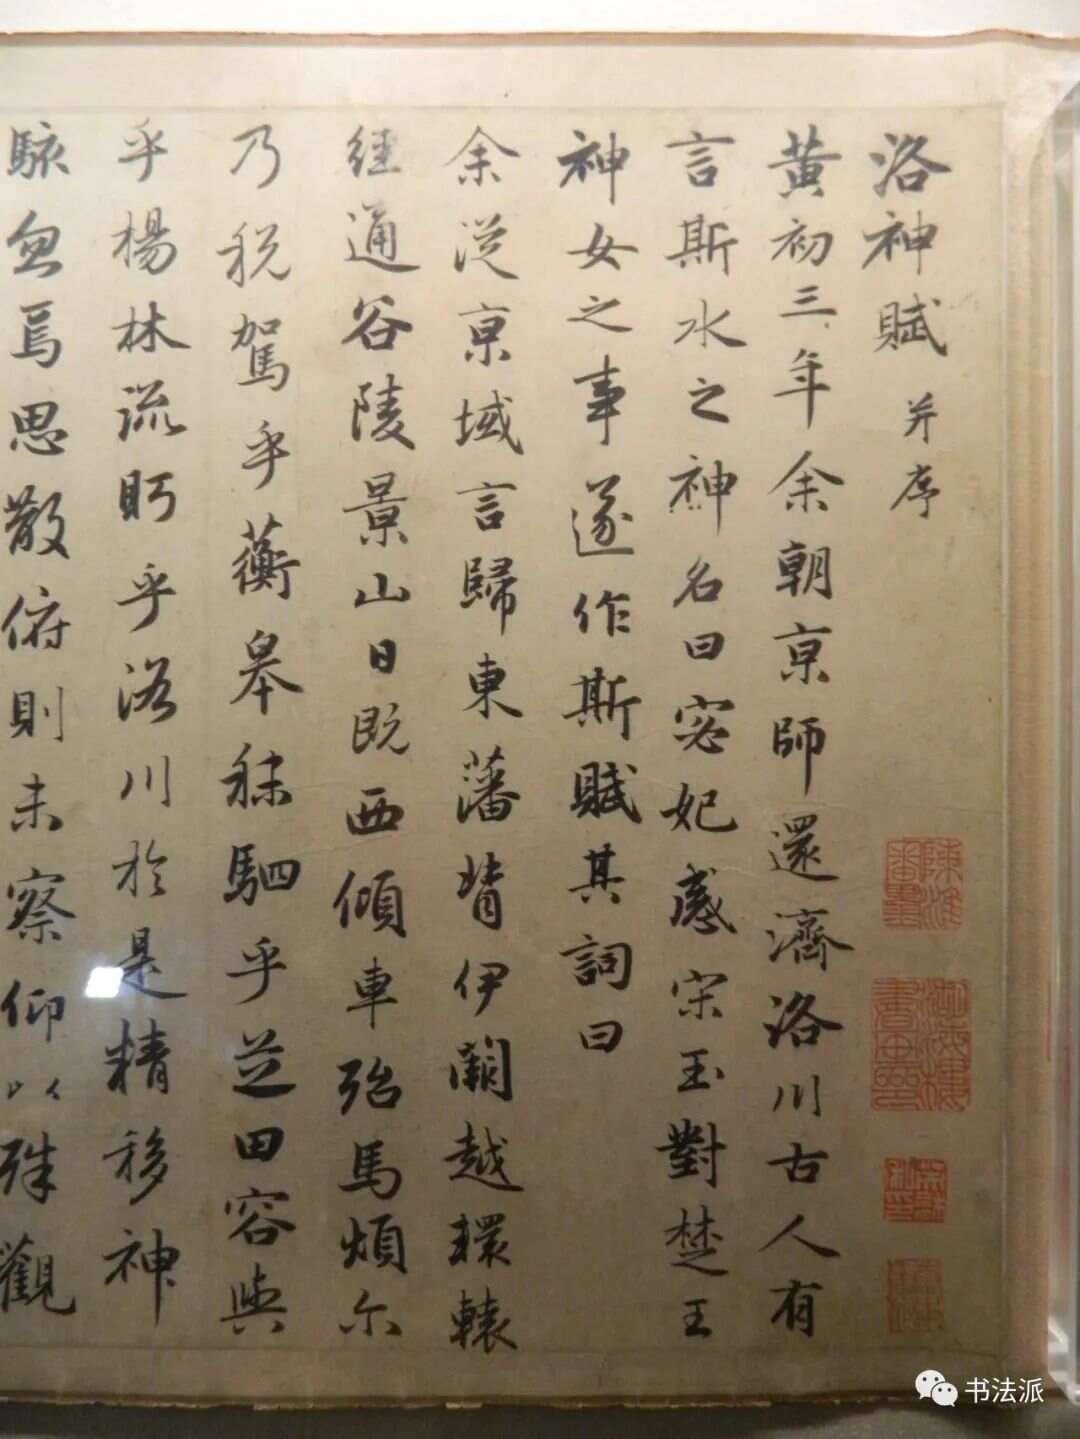 洛神賦 并序
黄初三年余朝京師還濟洛川古人有
言斯水之神名曰宓妃感宋玉對楚王
神女之事遂作斯賦其詞曰
余從京域言歸東藩背伊闕越轘轅
經通谷陵景山日既西傾車殆馬煩尓
乃税駕乎蘅皋秣駟乎芝田容與
乎楊林流眄乎洛川於是精移神
駭忽焉思散俯則未察仰以殊觀
书法派